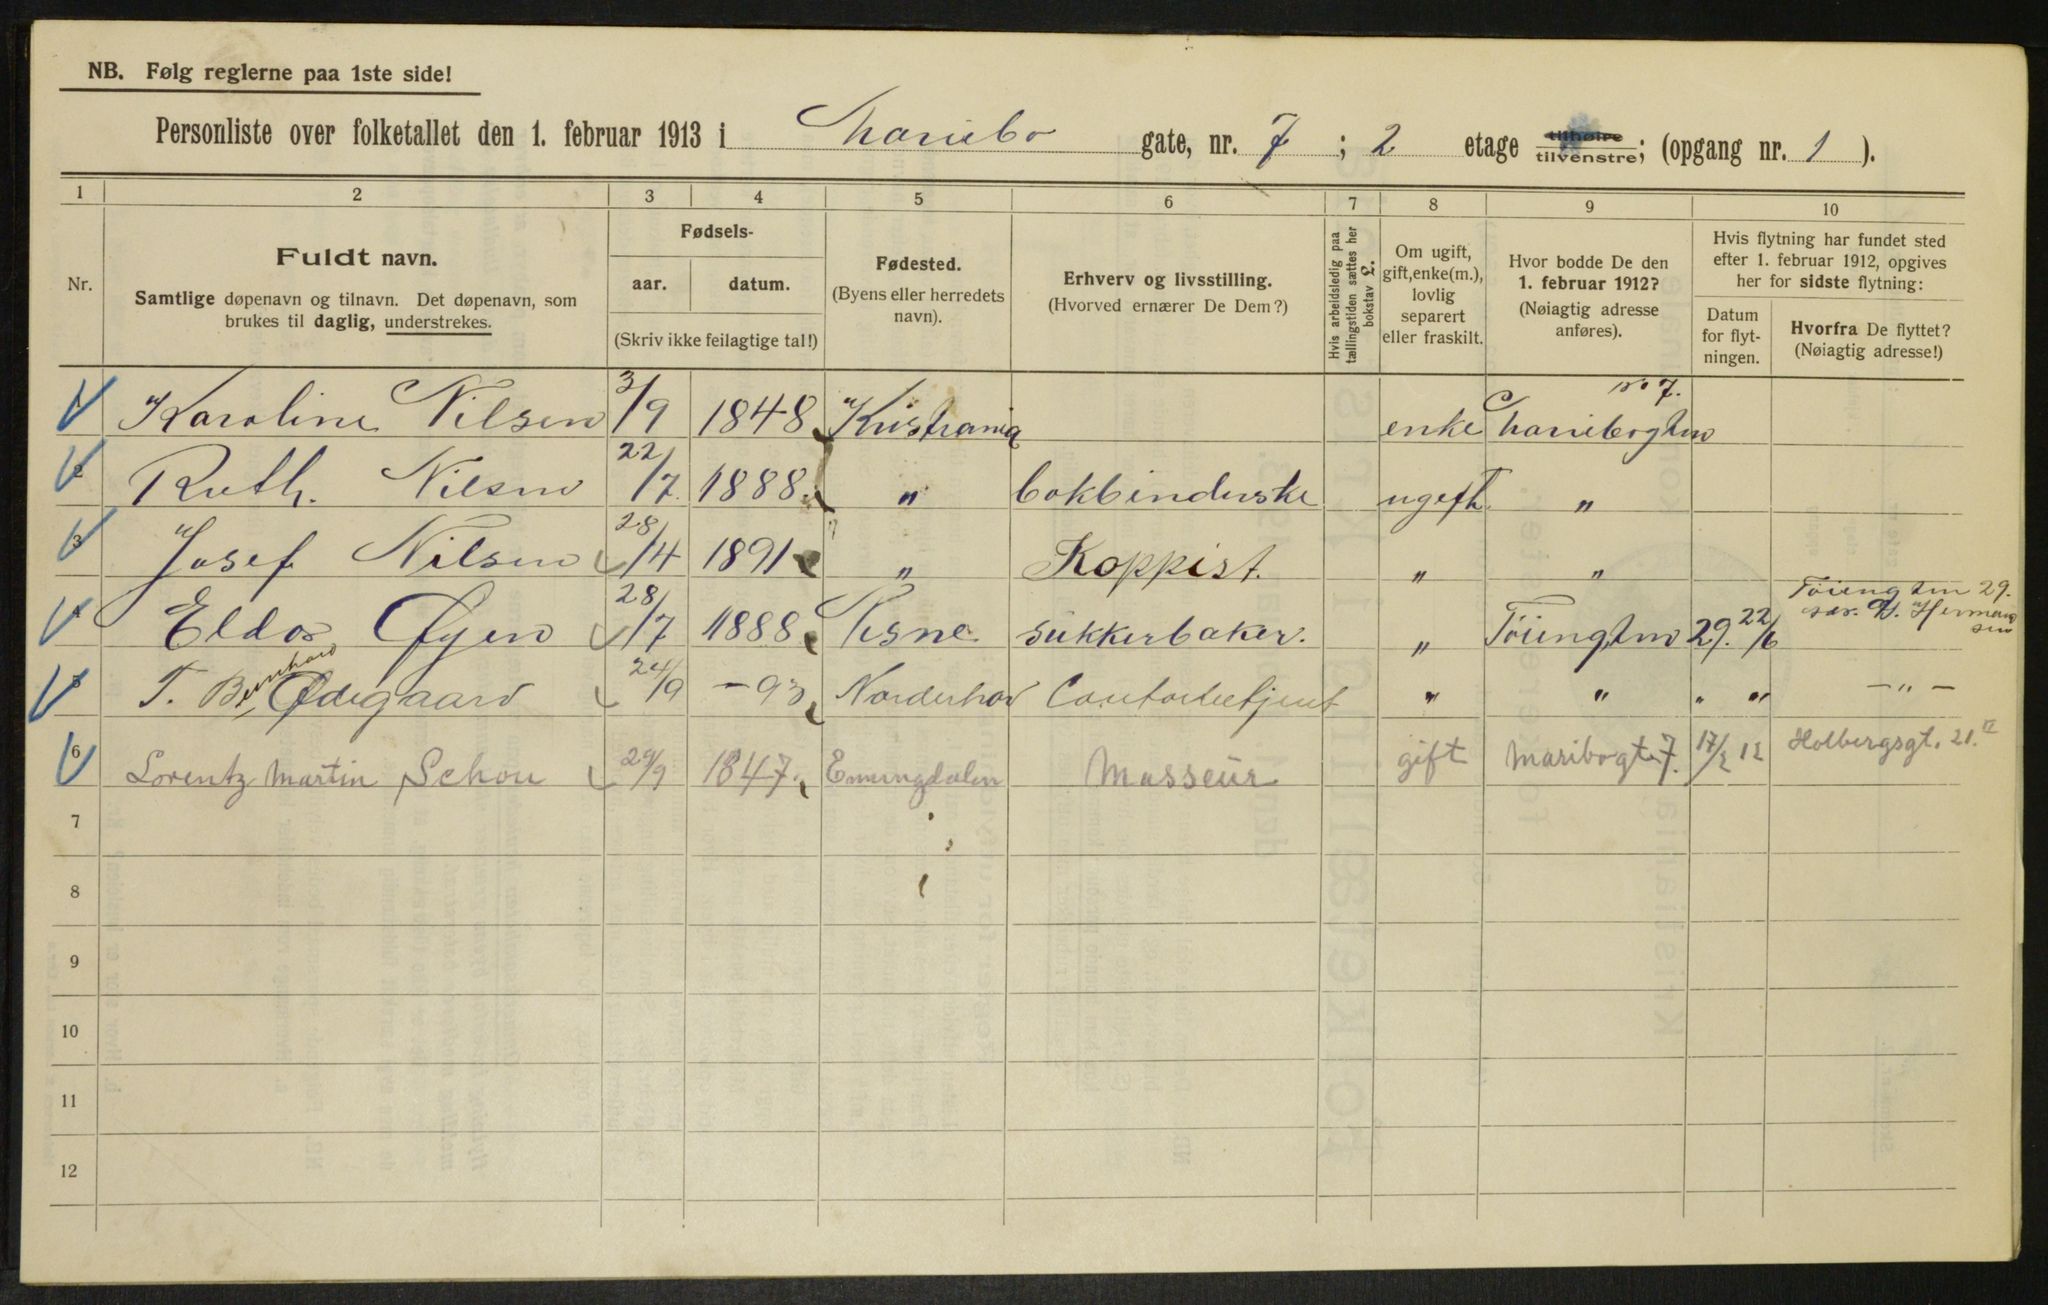 NB. Følg reglerne paa 1ste side!
Personliste over folketallet den 1. februar 1913 i Mariebo gate, nr. 7 ; 2 etage tilhøire tilvenstre; (opgang nr. 1 ).
1 2 3 4 5 6 7 8 9 10
Nr.
Fuldt navn.
Samtlige døpenavn og tilnavn. Det døpenavn, som
brukes til daglig, understrekes.
Fødsels-
aar. datum.
(Skriv ikke feilagtige tal!)
Fødested.
(Byens eller herredets
navn).
Erhverv og livsstilling.
(Hvorved ernærer De Dem?)
Hvis arbeidsledig paa
tællingstiden sættes her
bokstav L.
Om ugift,
gift, enke(m.),
lovlig
separert
eller fraskilt.
Hvor bodde De den
1. februar 1912?
(Nøiagtig adresse
anføres).
Hvis flytning har fundet sted
efter 1. februar 1912, opgives
her for sidste flytning:
Datum
for flyt-
ningen.
Hvorfra De flyttet?
(Nøiagtig adresse!)
no 7.
1 Karoline Nilsen 3/9 1848 Kristrania enke Mariebogtn
2 Ruth. Nilsen 22/7. 1888. " bokbinderske ugift "
3 Josef Nilsen 28/4 1891 " Koppist. " "
4 Eldor Øyen 28/7 1888 Vesne sukkerbaker. " Tøiengtn 29. 22/6 Tøiengtn 29.
H. Herman
sen
5 T. Bernhard Ødegaard 24/9 -93 Norderhov Contorbetjent " " " " -"-
6 Lorentz Martin Schou 29/9 1847. Enningdalen Masseür gift Maribogt. 7. 17/2 12 Holbergsgt. 21. II
7
8
9
10
11
12